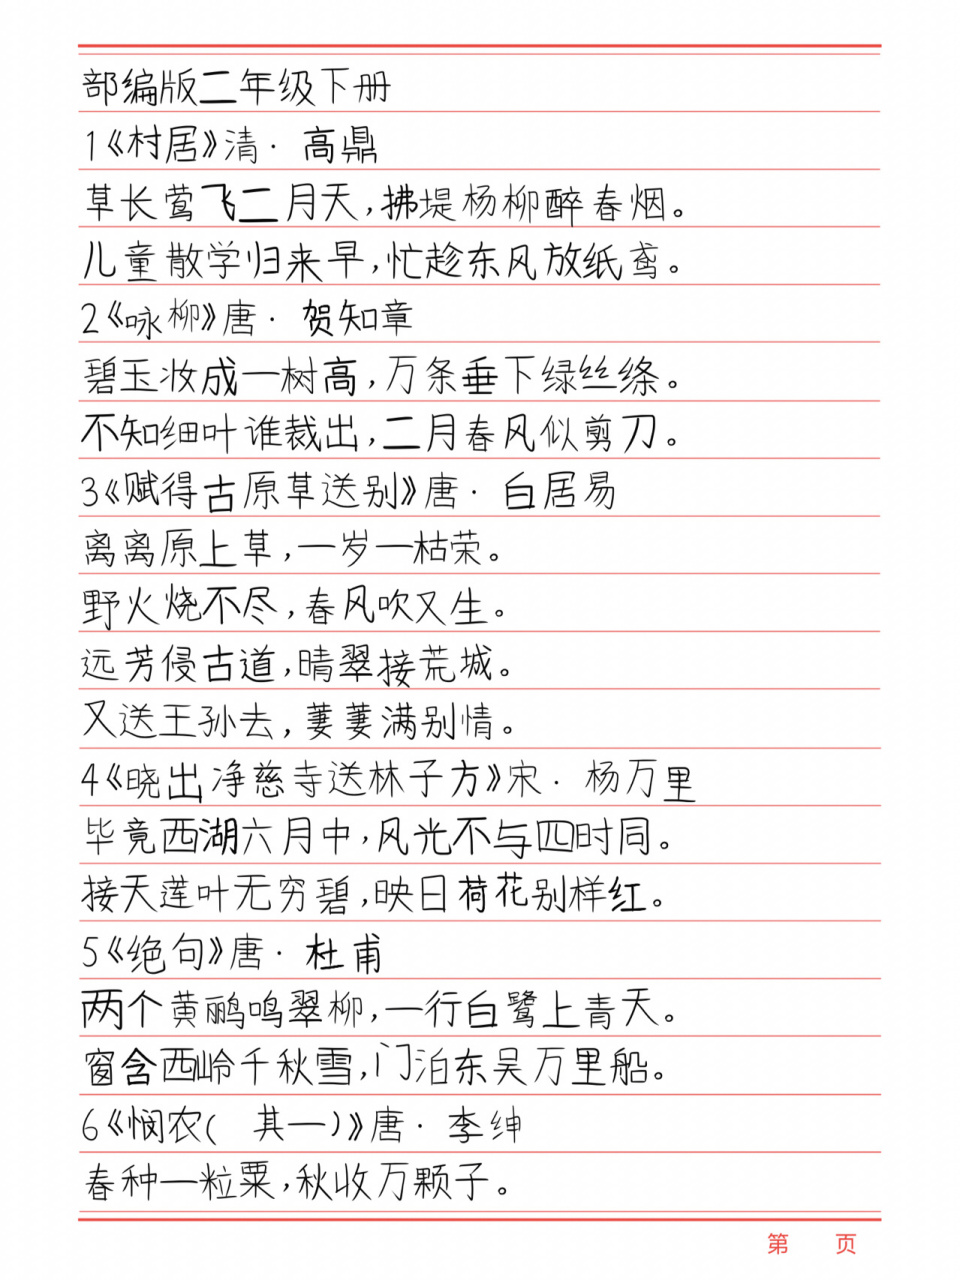 部编版二年级下册
1《村居》清·高鼎
草长莺飞二月天,拂堤杨柳醉春烟。
儿童散学归来早,忙趁东风放纸鸢。
2《咏柳》唐·贺知章
碧玉妆成一树高,万条垂下绿丝绦。
不知细叶谁裁出,二月春风似剪刀。
3《赋得古原草送别》唐·白居易
离离原上草,一岁一枯荣。
野火烧不尽,春风吹又生。
远芳侵古道,晴翠接荒城。
又送王孙去,萋萋满别情。
4《晓出净慈寺送林子方》宋·杨万里
毕竟西湖六月中,风光不与四时同。
接天莲叶无穷碧,映日荷花别样红。
5《绝句》唐·杜甫
两个黄鹂鸣翠柳,一行白鹭上青天。
窗含西岭千秋雪,门泊东吴万里船。
6《悯农(其一)》唐·李绅
春种一粒粟,秋收万颗子。
第 页